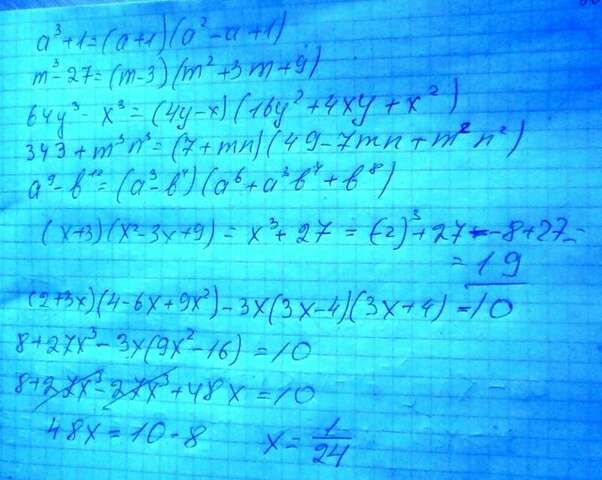 a³+1=(a+1)(a²-a+1)
m³-27=(m-3)(m²+3m+9)
64y³-x³=(4y-x)(16y²+4xy+x²)
343+m³n³=(7+mn)(49-7mn+m²n²)
a⁹-b¹²=(a³-b⁴)(a⁶+a³b⁴+b⁸)
(x+3)(x²-3x+9)=x³+27=(-2)³+27=-8+27=
=19
(2+3x)(4-6x+9x²)-3x(3x-4)(3x+4)=10
8+27x³-3x(9x²-16)=10
8+27x³-27x³+48x=10
48x=10-8 x=1/24